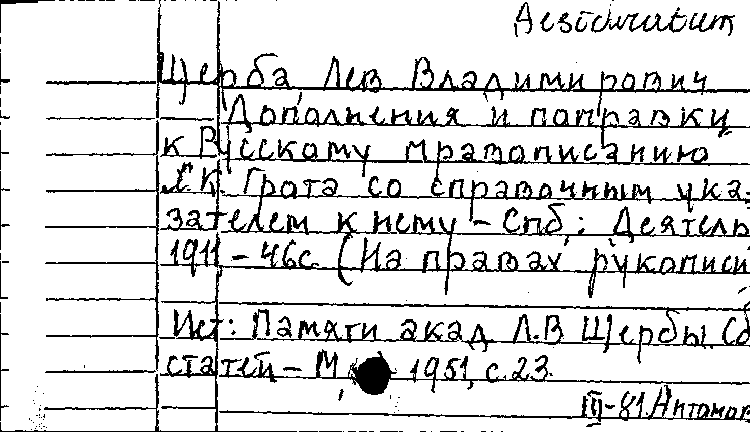 Desideratum
Щерба, Лев Владимирович
Дополнения и поправки
к Русскому правописанию
Я.К. Грота со справочным ука-
зателем к нему – Спб.: Деятель
1911 – 46с. (На правах рукописи
Ист: Памяти акад Л.В Щербы. Сб
статей – М, 1951, с.23.
III-81.